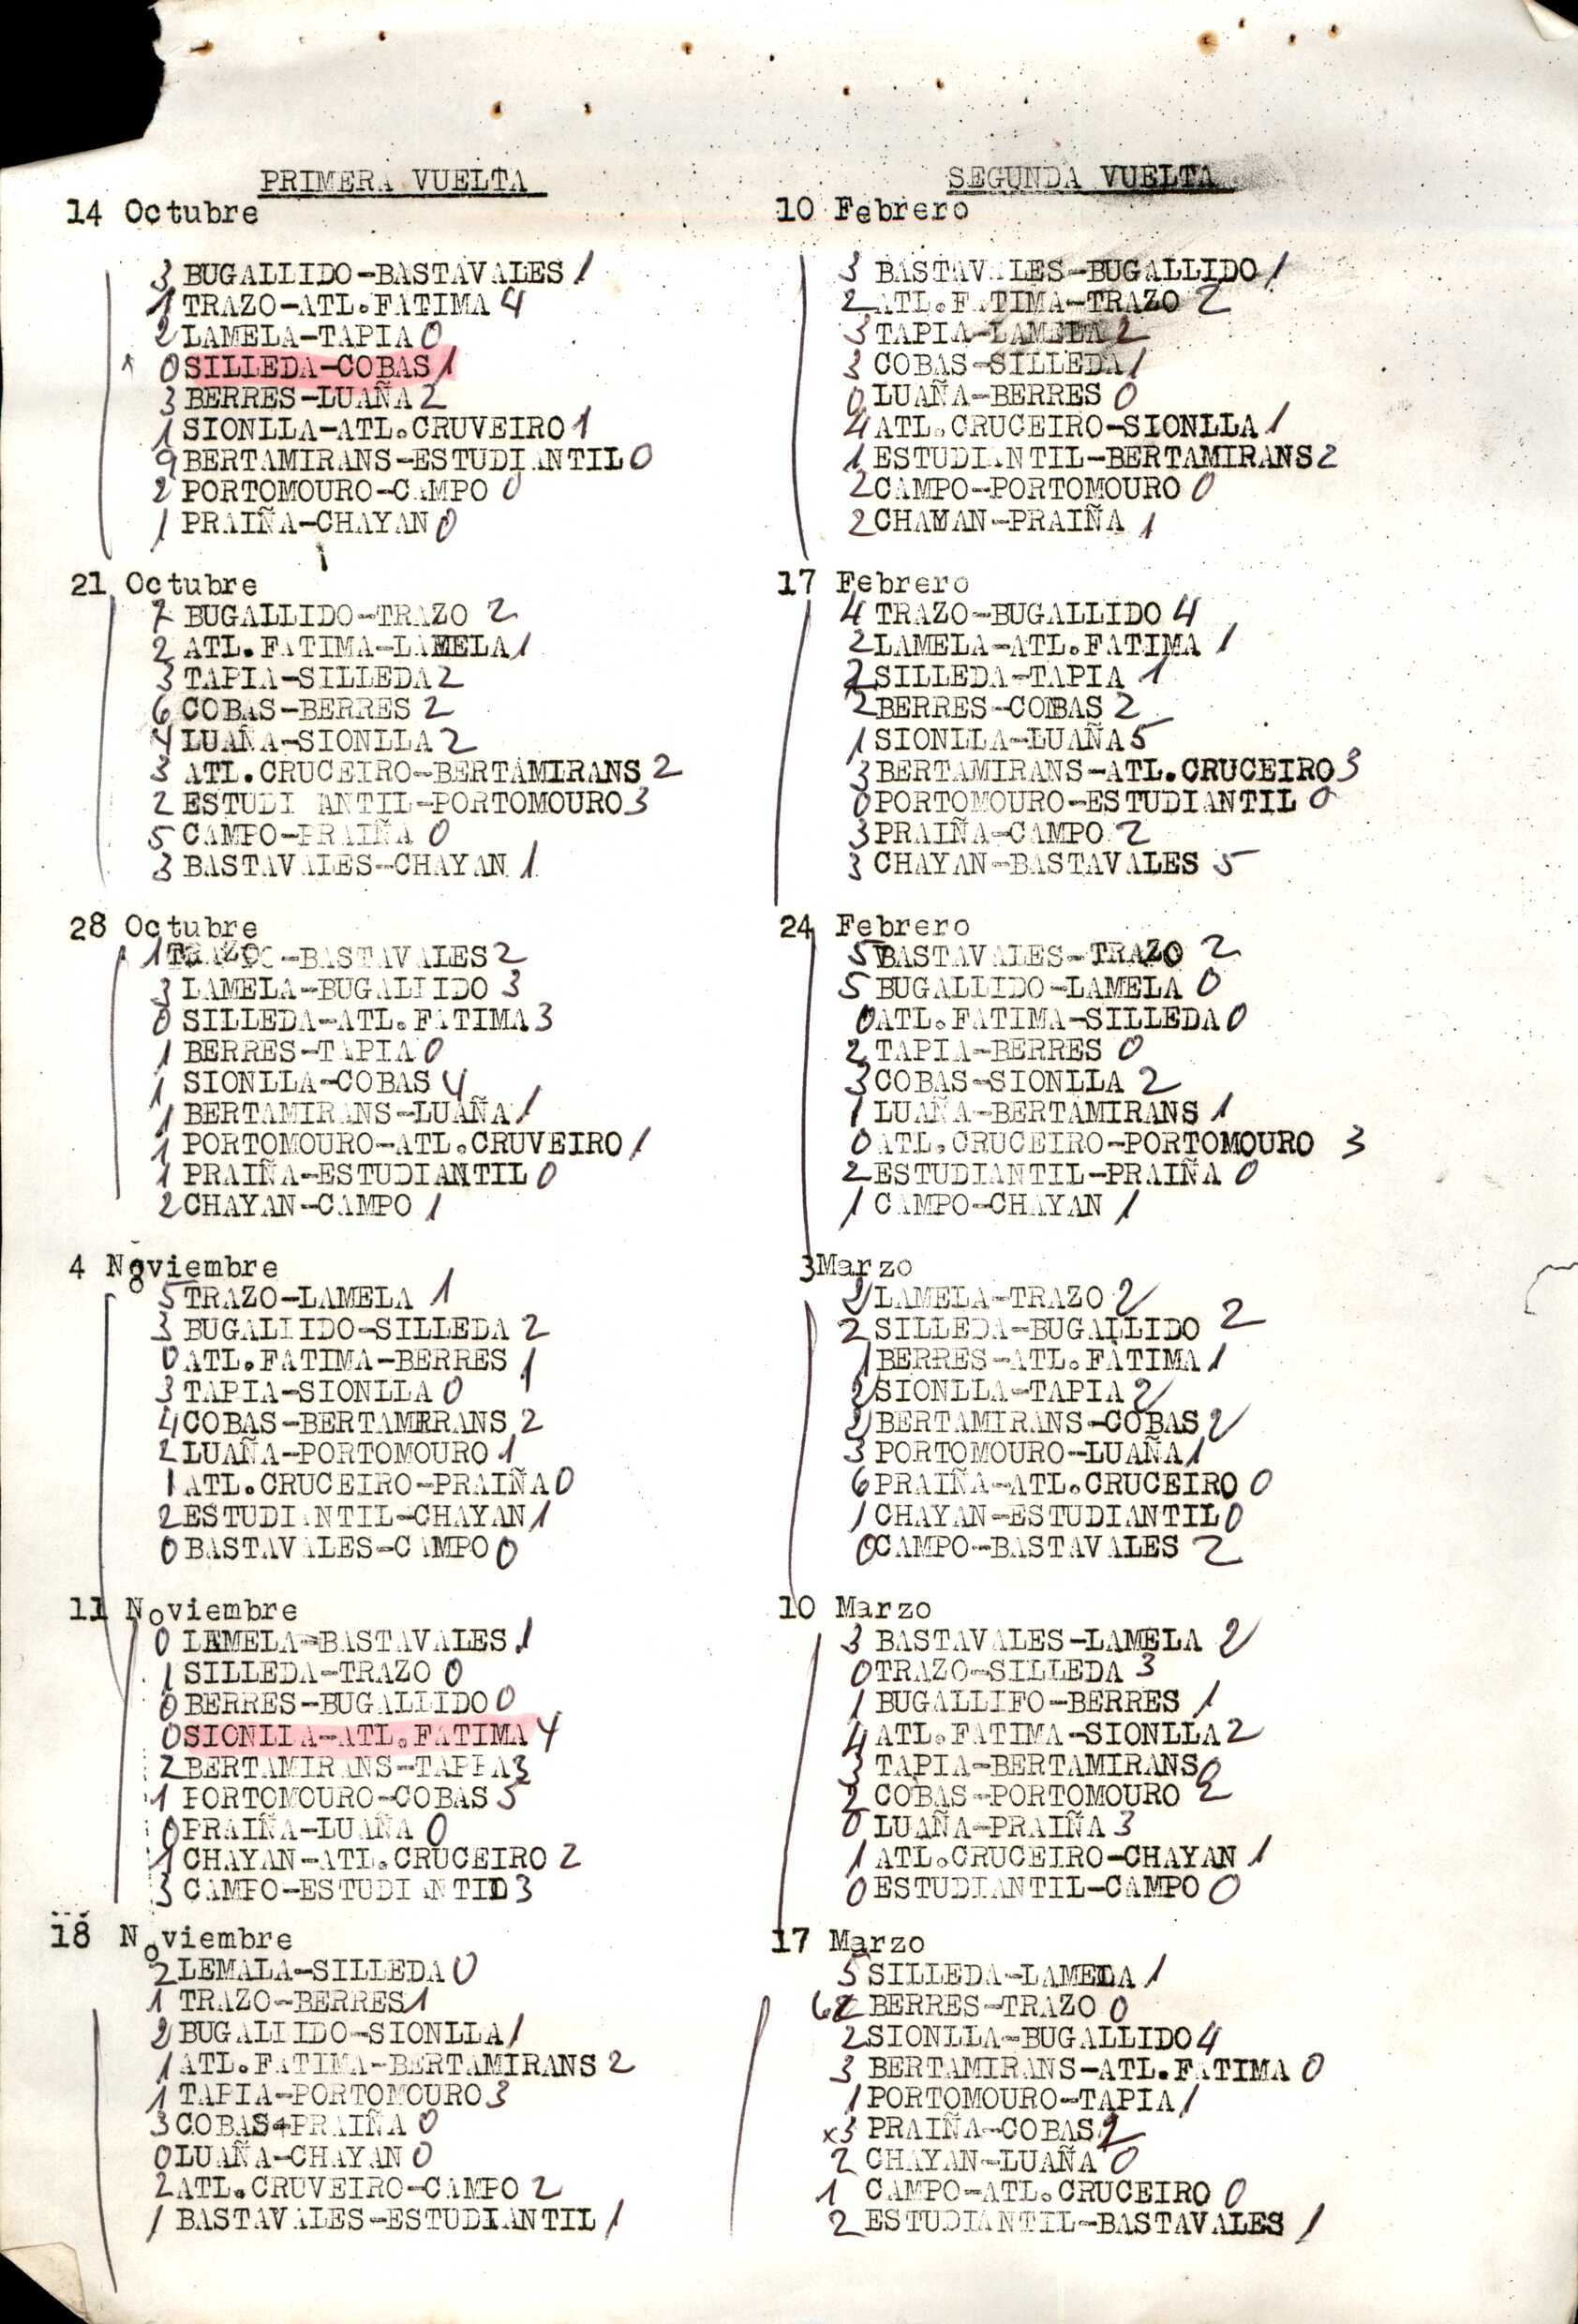 PRIMERA VUELTA
14 Octubre
3 BUGALLIDO-BASTAVALES 1
1 TRAZO-ATL.FATIMA 4
2 LAMELA-TAPIA 0
0 SILLEDA-COBAS 1
3 BERRES-LUAÑA 2
1 SIONLLA-ATL.CRUVEIRO 1
9 BERTAMIRANS-ESTUDIANTIL 0
2 PORTOMOURO-CAMPO 0
1 PRAIÑA-CHAYAN 0
21 Octubre
7 BUGALLIDO-TRAZO 2
2 ATL.FATIMA-LAMELA 1
3 TAPIA-SILLEDA 2
6 COBAS-BERRES 2
4 LUAÑA-SIONLLA 2
3 ATL.CRUCEIRO-BERTAMIRANS 2
2 ESTUDIANTIL-PORTOMOURO 3
5 CAMPO-PRAIÑA 0
3 BASTAVALES-CHAYAN 1
28 Octubre
1 TRAZO-BASTAVALES 2
3 LAMELA-BUGALLIDO 3
0 SILLEDA-ATL.FATIMA 3
1 BERRES-TAPIA 0
1 SIONLLA-COBAS 4
1 BERTAMIRANS-LUAÑA 1
1 PORTOMOURO-ATL.CRUVEIRO 1
1 PRAIÑA-ESTUDIANTIL 0
2 CHAYAN-CAMPO 1
4 Noviembre
5 TRAZO-LAMELA 1
3 BUGALLIDO-SILLEDA 2
0 ATL.FATIMA-BERRES 1
3 TAPIA-SIONLLA 0
4 COBAS-BERTAMERANS 2
2 LUAÑA-PORTOMOURO 1
1 ATL.CRUCEIRO-PRAIÑA 0
2 ESTUDIANTIL-CHAYAN 1
0 BASTAVALES-CAMPO 0
11 Noviembre
0 LAMELA-BASTAVALES 1
1 SILLEDA-TRAZO 0
0 BERRES-BUGALLIDO 0
0 SIONLLA-ATL.FATIMA 4
2 BERTAMIRANS-TAPIA 3
1 PORTOMOURO-COBAS 5
0 PRAIÑA-LUAÑA 0
1 CHAYAN-ATL.CRUCEIRO 2
3 CAMPO-ESTUDIANTID 3
18 Noviembre
2 LEMALA-SILLEDA 0
1 TRAZO-BERRES 1
2 BUGALLIDO-SIONLLA 1
1 ATL.FATIMA-BERTAMIRANS 2
1 TAPIA-PORTOMOURO 3
3 COBAS-PRAIÑA 0
0 LUAÑA-CHAYAN 0
2 ATL.CRUVEIRO-CAMPO 2
1 BASTAVALES-ESTUDIANTIL 1
SEGUNDA VUELTA
10 Febrero
3 BASTAVALES-BUGALLIDO 1
2 ATL.FATIMA-TRAZO 2
3 TAPIA-LAMELA 2
3 COBAS-SILLEDA 1
0 LUAÑA-BERRES 0
4 ATL.CRUCEIRO-SIONLLA 1
1 ESTUDIANTIL-BERTAMIRANS 2
2 CAMPO-PORTOMOURO 0
2 CHAYAN-PRAIÑA 1
17 Febrero
4 TRAZO-BUGALLIDO 4
2 LAMELA-ATL.FATIMA 1
2 SILLEDA-TAPIA 1
2 BERRES-COBAS 2
1 SIONLLA-LUAÑA 5
3 BERTAMIRANS-ATL.CRUCEIRO 3
0 PORTOMOURO-ESTUDIANTIL 0
3 PRAIÑA-CAMPO 2
3 CHAYAN-BASTAVALES 5
24 Febrero
5 BASTAVALES-TRAZO 2
5 BUGALLIDO-LAMELA 0
0 ATL.FATIMA-SILLEDA 0
2 TAPIA-BERRES 0
3 COBAS-SIONLLA 2
1 LUAÑA-BERTAMIRANS 1
0 ATL.CRUCEIRO-PORTOMOURO 3
2 ESTUDIANTIL-PRAIÑA 0
1 CAMPO-CHAYAN 1
3 Marzo
2 LAMELA-TRAZO 2
2 SILLEDA-BUGALLIDO 2
1 BERRES-ATL.FATIMA 1
2 SIONLLA-TAPIA 2
2 BERTAMIRANS-COBAS 2
3 PORTOMOURO-LUAÑA 1
6 PRAIÑA-ATL.CRUCEIRO 0
1 CHAYAN-ESTUDIANTIL 0
0 CAMPO-BASTAVALES 2
10 Marzo
3 BASTAVALES-LAMELA 2
0 TRAZO-SILLEDA 3
1 BUGALLIFO-BERRES 1
4 ATL.FATIMA-SIONLLA 2
TAPIA-BERTAMIRANS
2 COBAS-PORTOMOURO 2
0 LUAÑA-PRAIÑA 3
1 ATL.CRUCEIRO-CHAYAN 1
0 ESTUDIANTIL-CAMPO 0
17 Marzo
5 SILLEDA-LAMELA 1
6 BERRES-TRAZO 0
2 SIONLLA-BUGALLIDO 4
3 BERTAMIRANS-ATL.FATIMA 0
1 PORTOMOURO-TAPIA 1
x3 PRAIÑA-COBAS 2
2 CHAYAN-LUAÑA 0
1 CAMPO-ATL.CRUCEIRO 0
2 ESTUDIANTIL-BASTAVALES 1